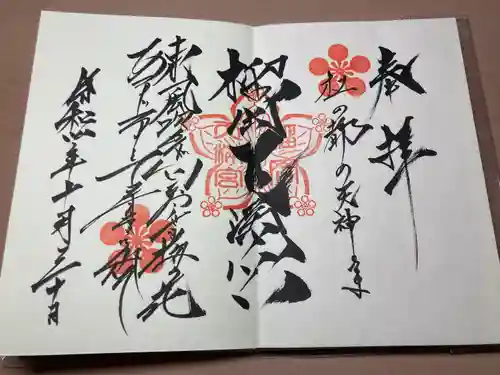 奉拝
杜の都の天神さま
榴岡天満宮
東風吹かばにほひおこせよ梅の花
あるじなしとて春な忘れそ
令和六年十月三十日